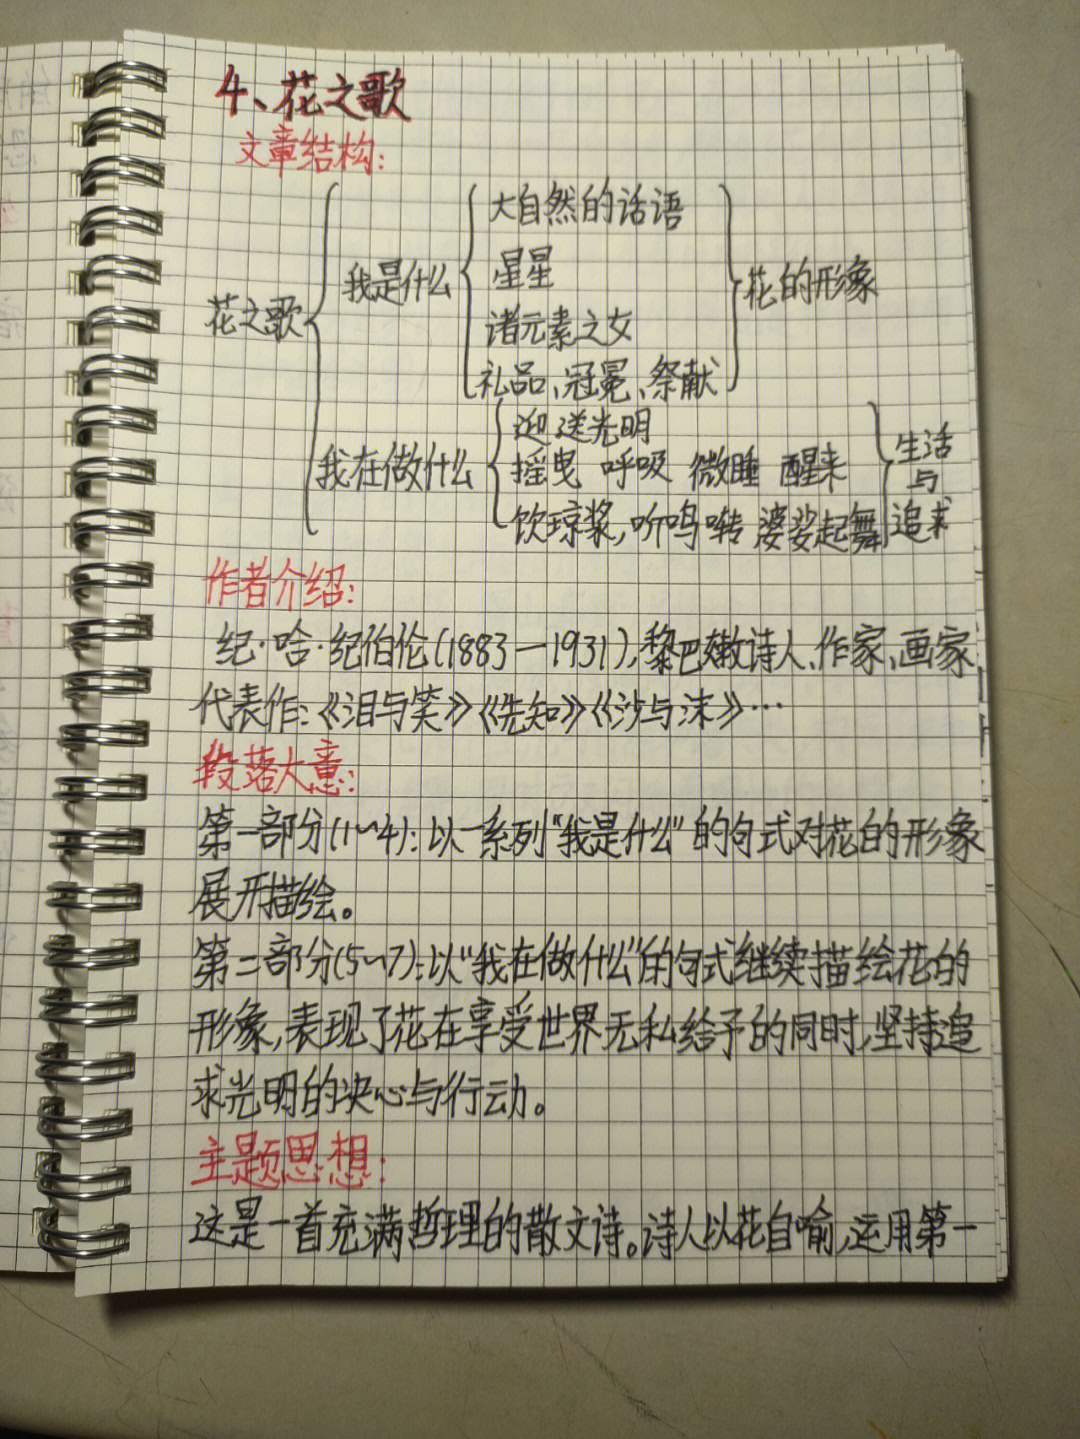 4、花之歌
文章结构:
大自然的话语
星星
我是什么
花的形象
花之歌
诸元素之女
礼品、冠冕、祭献
迎送光明
我在做什么
摇曳 呼吸 微睡 醒来
生活
与
追求
饮琼浆,听鸣啭 婆娑起舞
作者介绍:
纪·哈·纪伯伦(1883—1931),黎巴嫩诗人、作家、画家
代表作:《泪与笑》《先知》《沙与沫》…
段落大意:
第一部分(1~4):以一系列"我是什么"的句式对花的形象
展开描绘。
第二部分(5~7):以"我在做什么"的句式继续描绘花的
形象,表现了花在享受世界无私给予的同时,坚持追
求光明的决心与行动。
主题思想:
这是一首充满哲理的散文诗。诗人以花自喻,运用第一